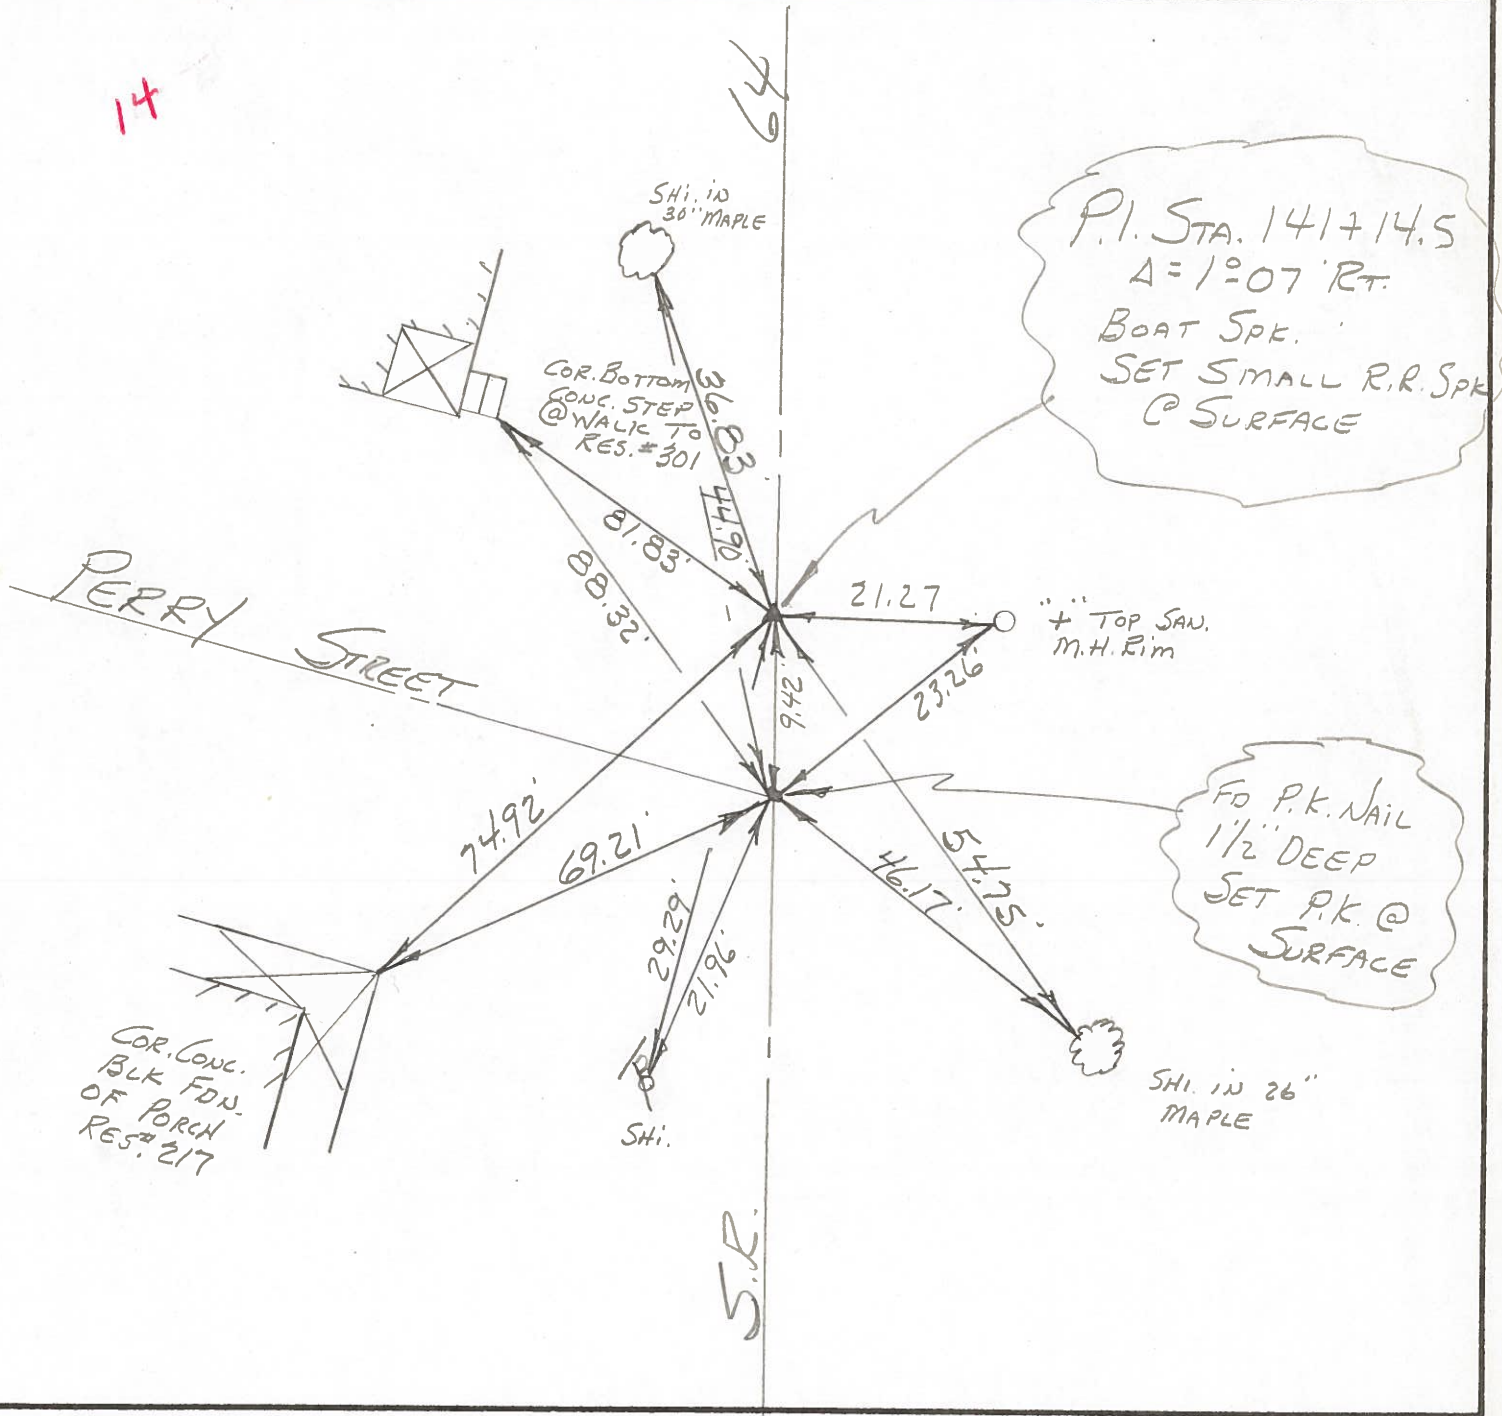 14
64
SHI. IN
30" MAPLE
P.I. STA. 141+14.5
Δ = 1°07' RT.
BOAT SPK.
SET SMALL R.R. SPK
@ SURFACE
COR. BOTTOM
CONC. STEP
@ WALK TO
RES. #301
36.83
44.90
81.83'
88.32'
21.27
"+" TOP SAN.
M.H. RIM
23.26'
9.42'
PERRY STREET
74.92'
69.21'
FD P.K. NAIL
1 1/2" DEEP
SET P.K. @
SURFACE
54.75'
46.17'
29.29'
21.96'
COR. CONC.
BLK FDN.
OF PORCH
RES. #217
SHI.
SHI. IN 26"
MAPLE
S.R.